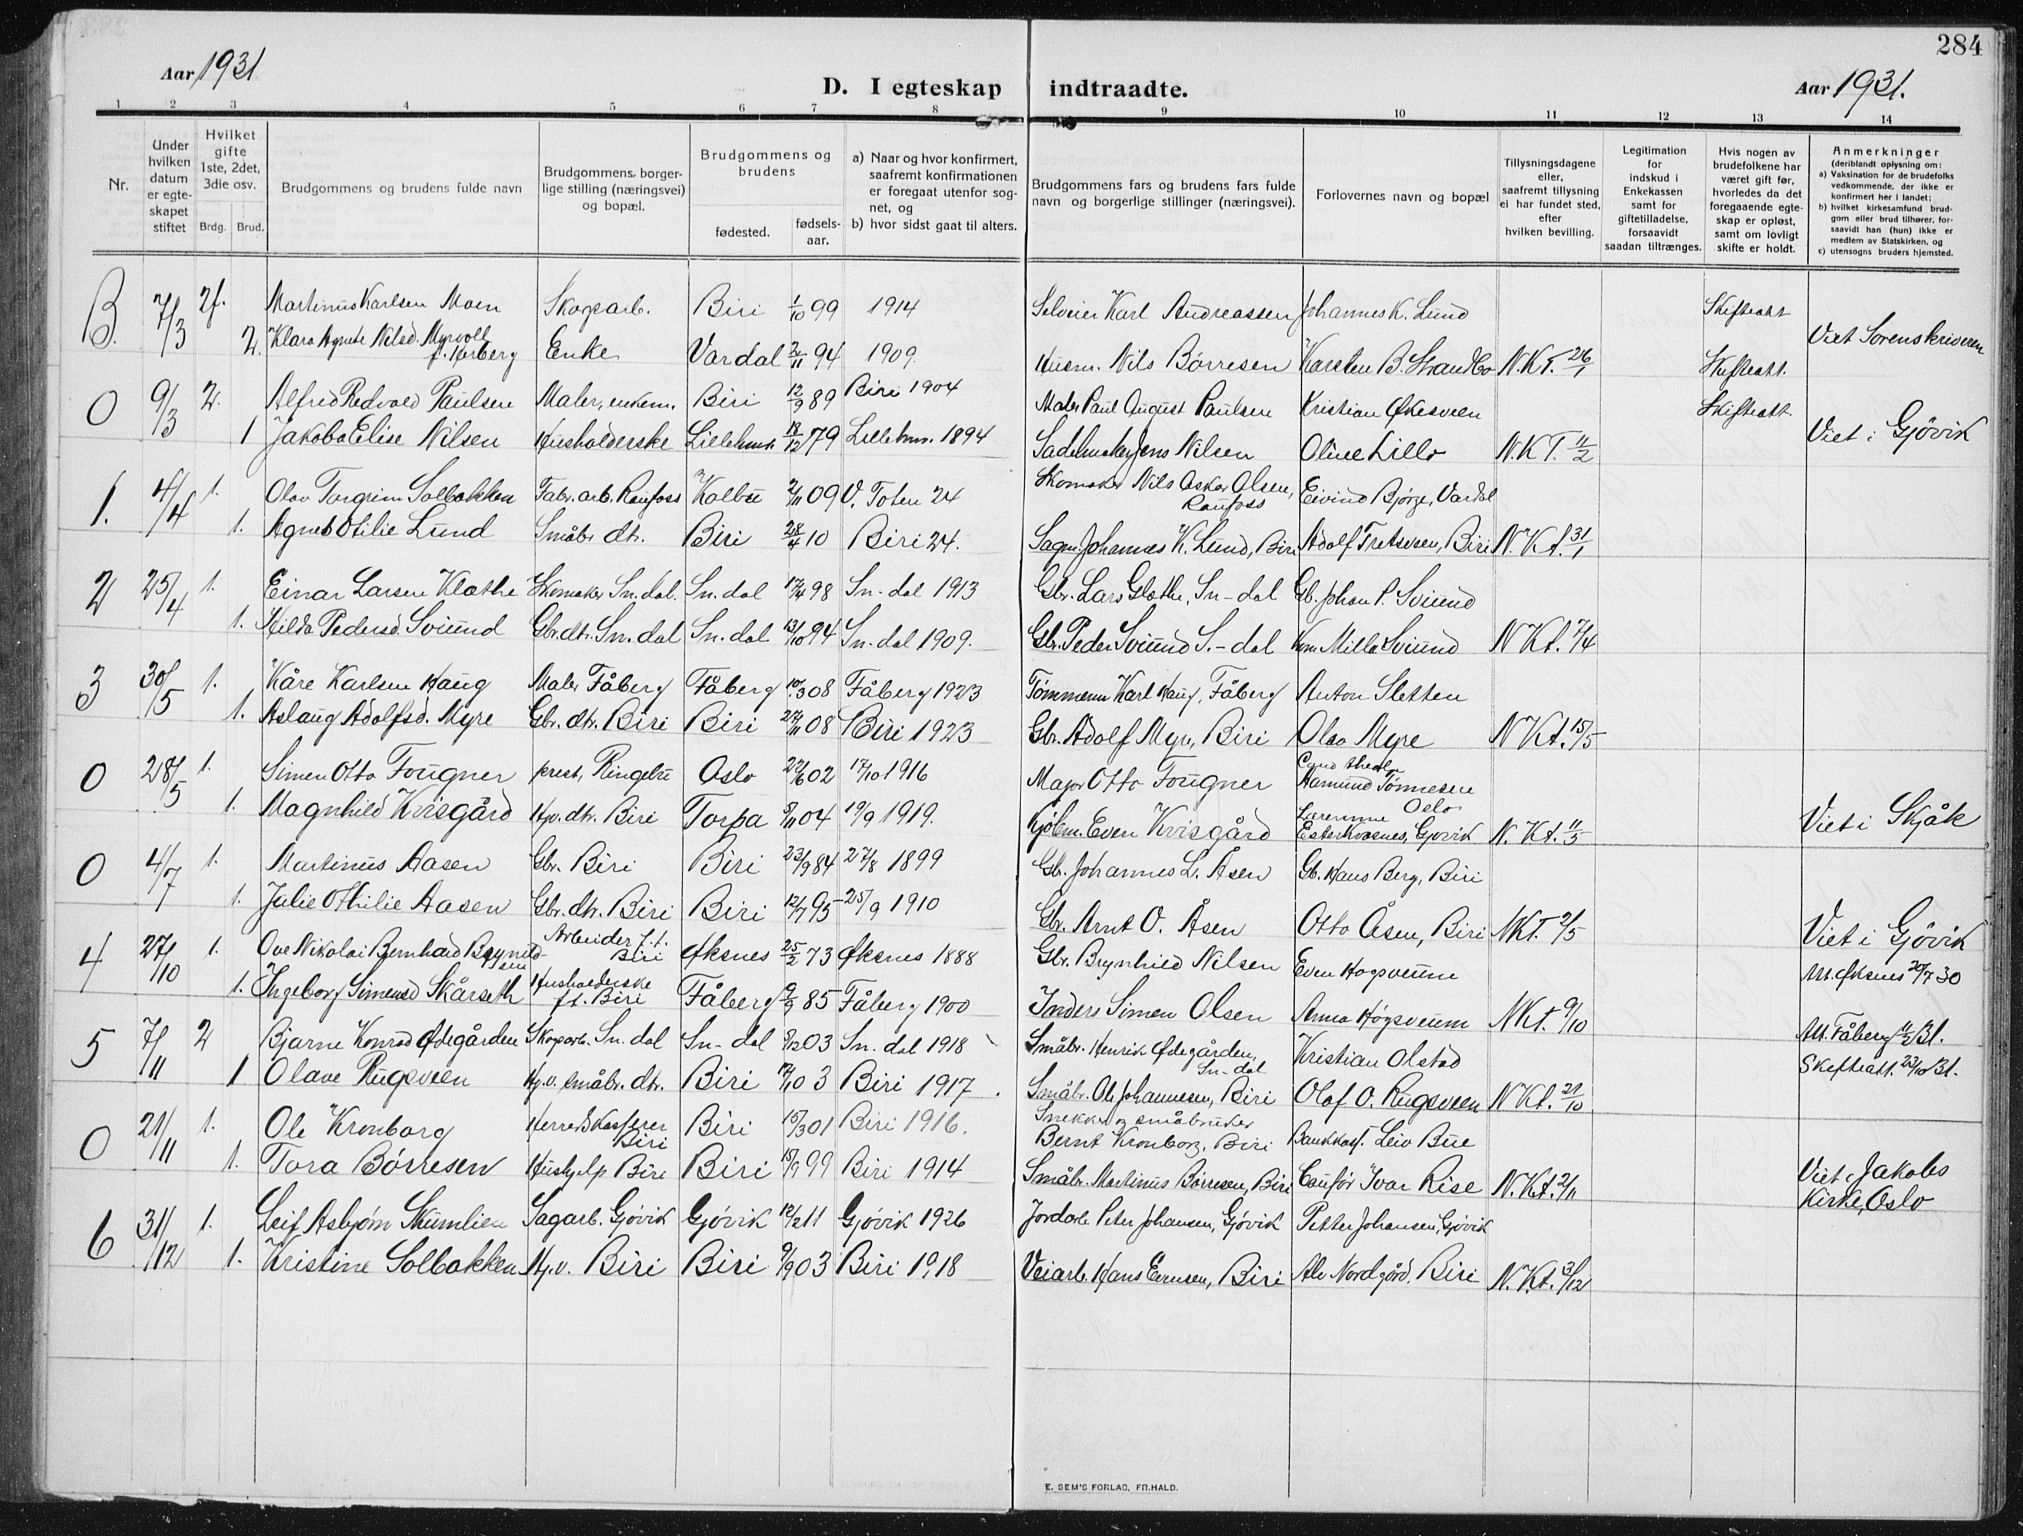 284
Aar 1931
D. I egteskap indtraadte.
Aar 1931.
1 2 3 4 5 6 7 8 9 10 11 12 13 14
Nr.
Under hvilken datum er egteskapet stiftet
Hvilket gifte 1ste, 2det, 3die osv.
Brdg. Brud.
Brudgommens og brudens fulde navn
Brudgommens, borgerlige stilling (næringsvei) og bopæl.
Brudgommens og brudens
fødested. fødselsaar.
a) Naar og hvor konfirmert, saafremt konfirmationen er foregaat utenfor sognet, og
b) hvor sidst gaat til alters.
Brudgommens fars og brudens fars fulde navn og borgerlige stillinger (næringsvei).
Forlovernes navn og bopæl
Tillysningsdagene eller, saafremt tillysning ei har fundet sted, efter hvilken bevilling.
Legitimation for indskud i Enkekassen samt for giftetilladelse, forsaavidt saadan tiltrænges.
Hvis nogen av brudefolkene har været gift før, hvorledes da det foregaaende egteskap er opløst, samt om lovligt skifte er holdt.
Anmerkninger
(deriblandt oplysning om:
a) Vaksination for de brudefolks vedkommende, der ikke er konfirmert her i landet;
b) hvilket kirkesamfund brudgom eller brud tilhører, forsaavidt han (hun) ikke er medlem av Statskirken, og
c) utensogns bruders hjemsted.
B. 7/3 2. Martinus Karlsen Moen Skogsarb. Biri 1/10 99 1914 Selveier Karl Andreassen Johannes K. Lund Skifteatt
2. Klara Agnete Nilsd. Myrvold Enke Vardal 2/11 94 1909. Husm. Nils Børresen Karsten B. Strandbo N.K.T. 26/1 Skifteatt. Viet Sorenskriveren
0 9/3 2. Alfred Redvald Paulsen Maler, enkem. Biri 12/9 89 Biri 1904 Maler Paul August Paulsen Kristian Økesveen Skifteatt
1 Jakoba Elise Nilsen Husholderske Lilleham 18/12 79 Lilleham. 1894 Sadelmaker Jens Nilsen Oline Lillo N.K.T. 11/2 Viet i Gjøvik
1. 4/4 1. Olav Torgrim Solbakken Fabr. arb. Raufoss Kolbu 2/11 09 V. Toten 24 Skomaker Nils Oskar Olsen, Raufoss Eivind Bjørge, Vardal
1. Agnes Otilie Lund Småbr. dtr. Biri 28/4 10 Biri 24. Sagm. Johannes K. Lund, Biri Adolf Tretsveen, Biri N.Kt. 31/1
2 25/4 1. Einar Larsen Kløthe Skomaker Sn.dal. Sn.dal 17/4 98 Sn-dal 1913 Gbr. Lars Gløthe, Sn-dal Gb. Johan P. Sviund
1. Hilda Pedersd. Sviund Gbr.dtr. Sn.dal Sn.dal 13/10 94 Sn-dal 1909. Gbr. Peder Sviund S.-dal Kom. Milla Sviund N Kt. 7/4
3 30/5 1. Kåre Karlsen Haug Maler Fåberg Fåberg 10/3 08 Fåberg 1923 Tømmerm Karl Haug, Fåberg Anton Sletten
1. Aslaug Adolfsd. Myre Gbr. dtr. Biri Biri 27/11 08 Biri 1923 Gbr. Adolf Myre, Biri Olav Myre N Kt. 15/5
0 28/5 1. Simen Otto Fougner prest, Ringebu Oslo 22/6 02 17/10 1916 Major Otto Fougner Cand. theol. Aamund Tønnesen Oslo
1. Magnhild Kvisgård Hjv. dtr. Biri Torpa 8/11 04 19/9 1919. Even Kvisgård Lærerinne Ester Kvasnes, Gjøvik N. Kt. 11/5 Viet i Skjåk
0 4/7 1. Martinus Aasen Gbr. Biri Biri 23/9 84 27/8 1899 Gb. Johannes L. Åsen Gb. Hans Berg, Biri
1. Julie Othilie Aasen Gbr. dtr. Biri Biri 12/7 95 25/9 1910 Gbr. Arnt O. Åsen Otto Åsen, Biri NKT. 2/5 Viet i Gjøvik
4 27/10 1. Ove Nikolai Bernhard Brynildsen Arbeider f.t. Biri Øksnes 25/2 73 Øksnes 1888 Gbr. Brynhild Nilsen Even Hogsveum Att. Øksnes 20/7 30
1. Ingeborg Simensd Skårseth Husholderske f.t. Biri Fåberg 9/9 85 Fåberg 1900 Inders Simen Olsen Anna Høgsveum NKt. 9/10 Att. Fåberg 31.
5 7/11 2 Bjarne Konrad Ødegården Skogarb. Sn.dal Sn-dal 8/12 03 Sn.dal 1918 Småbr. Henrik Ødegården, Sn-dal Kristian Olstad Skifteatt. 23/10 31.
1 Olave Rugsveen Hj.v. småbr. dtr. Biri 17/10 3 Biri 1917. Småbr. Ole Johannesen, Biri Olaf O. Rugsveen N Kt. 21/10
0 21/11 1. Ole Kronborg Herredskasserer Biri Biri 15/3 01 Biri 1916. Snekker og småbruker Bernt Kronborg, Biri Bankkass. Leiv Bue
1. Tora Børresen Hushjelp Biri Biri 18/9 99 Biri 1914 Småbr. Martinus Børresen, Biri Ivar Rise N.Kt. 2/11 Viet i Jakobs Kirke, Oslo
6 31/12 1. Leif Asbjørn Skumlien Sagarb. Gjøvik Gjøvik 12/2 11 Gjøvik 1926 Jordarb. Peter Johansen, Gjøvik Petter Johansen, Gjøvik
1. Kristine Solbakken Hj.v. Biri Biri 9/9 03 Biri 1918 Veiarb. Hans Evensen, Biri Alv Nordgård, Biri N.Kt. 3/12
E. SEM'S FORLAG, FR.HALD.